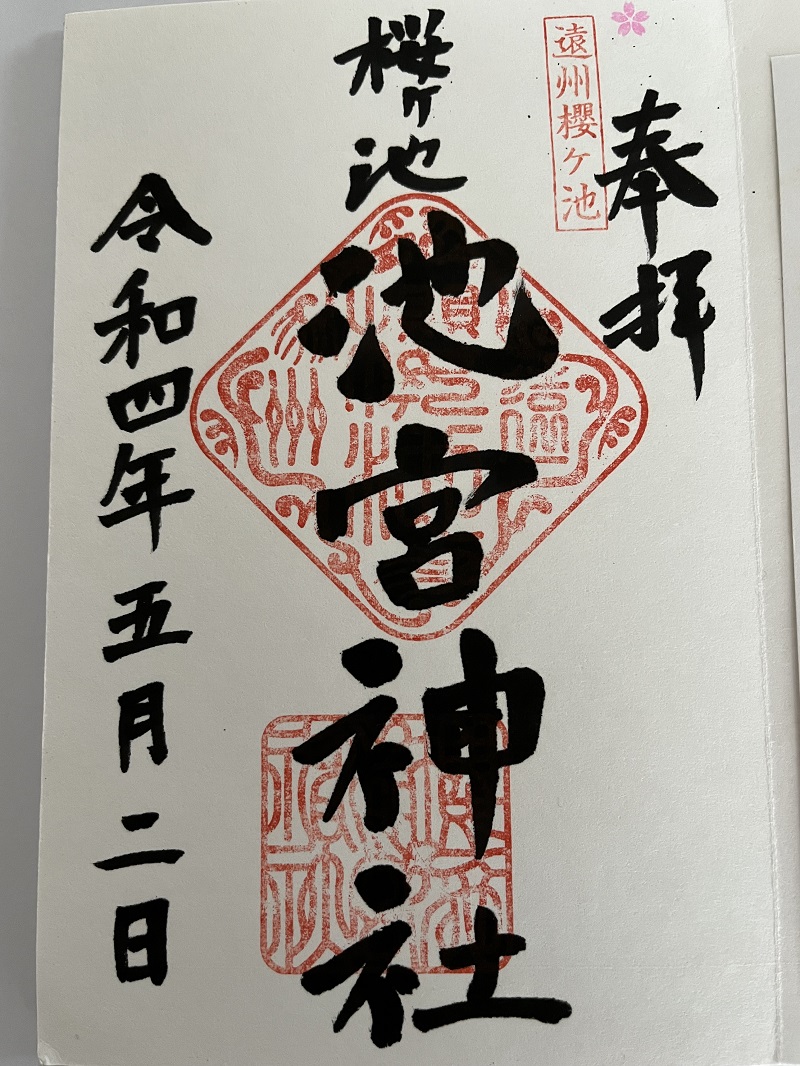 奉拝
遠州櫻ケ池
桜ヶ池
池宮神社
令和四年五月二日